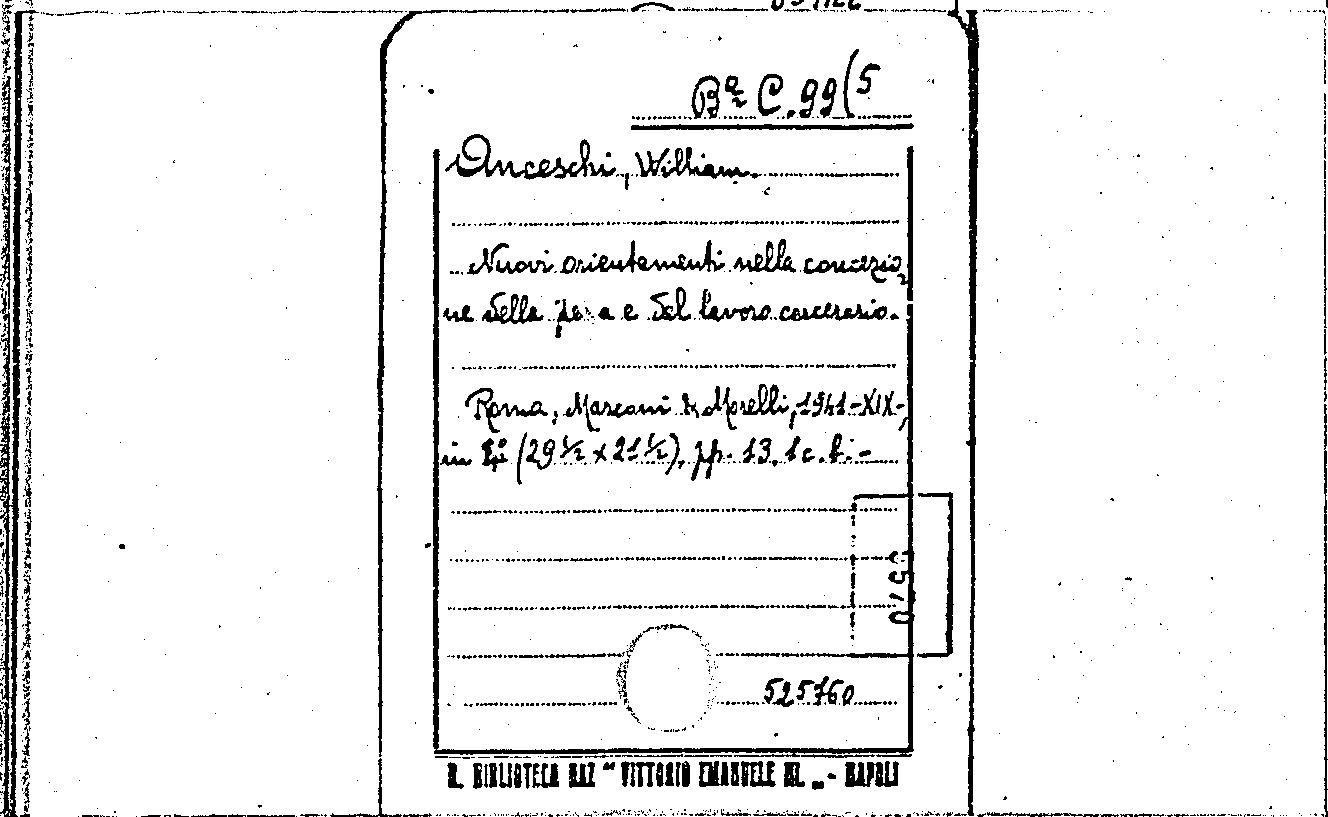 Bª C.99(5
Anceschi, William.
Nuovi orientamenti nella concezio=
ne della pena e del lavoro carcerario.
Roma, Marconi & Morelli, 1941-XIX-,
in 4º (29 ½ x 21 ½), pp. 13, 1 c. b. -
525760
R. BIBLIOTECA NAZ “ VITTORIO EMANUELE III. „ - NAPOLI